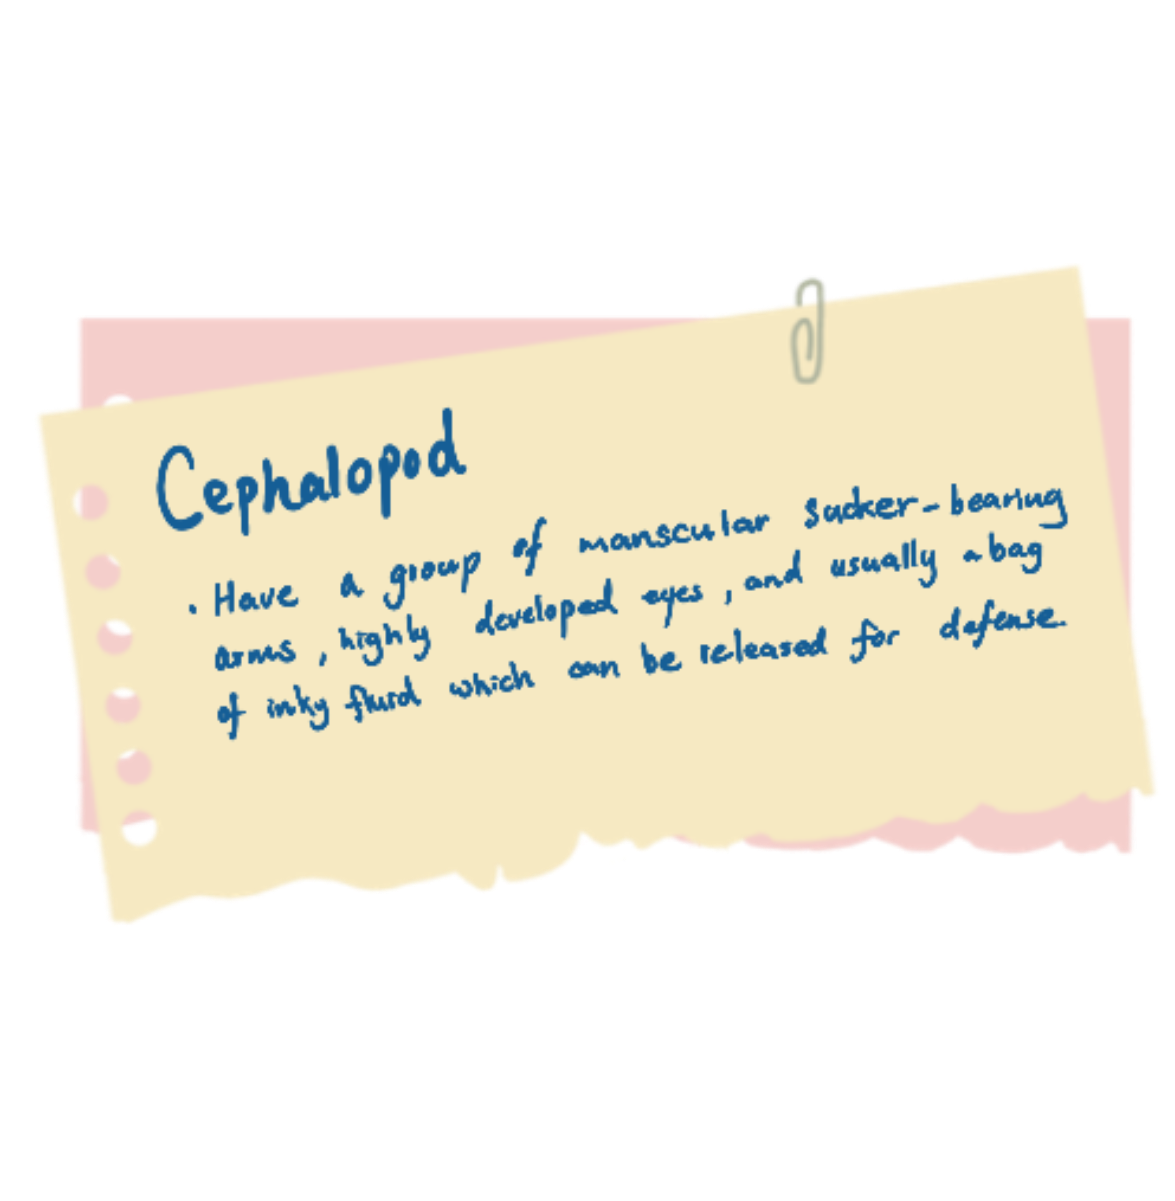 Cephalopod
· Have a group of manscular sucker-bearing
arms, highly developed eyes, and usually a bag
of inky fluid which can be released for defense.